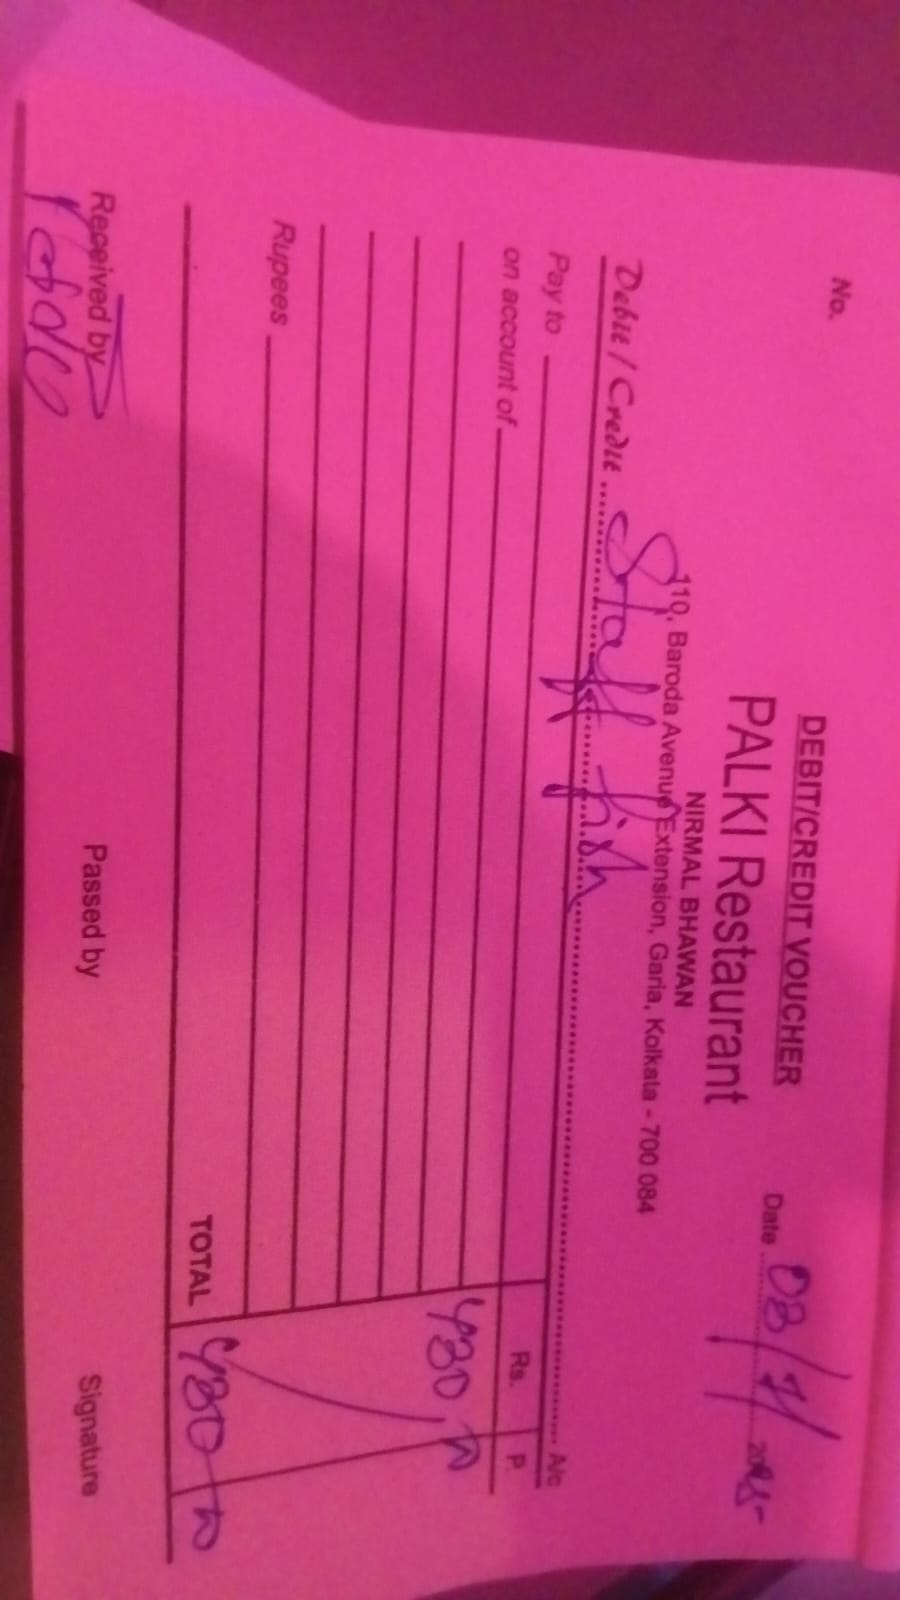 No.
DEBIT/CREDIT VOUCHER
PALKI Restaurant
NIRMAL BHAWAN
110, Baroda Avenue Extension, Garia, Kolkata - 700 084
Date 08/7/2025
Debit / Credit Staff fish A/c
Pay to
on account of Rs. P.
480
Rupees
TOTAL 480
Received by
Passed by
Signature